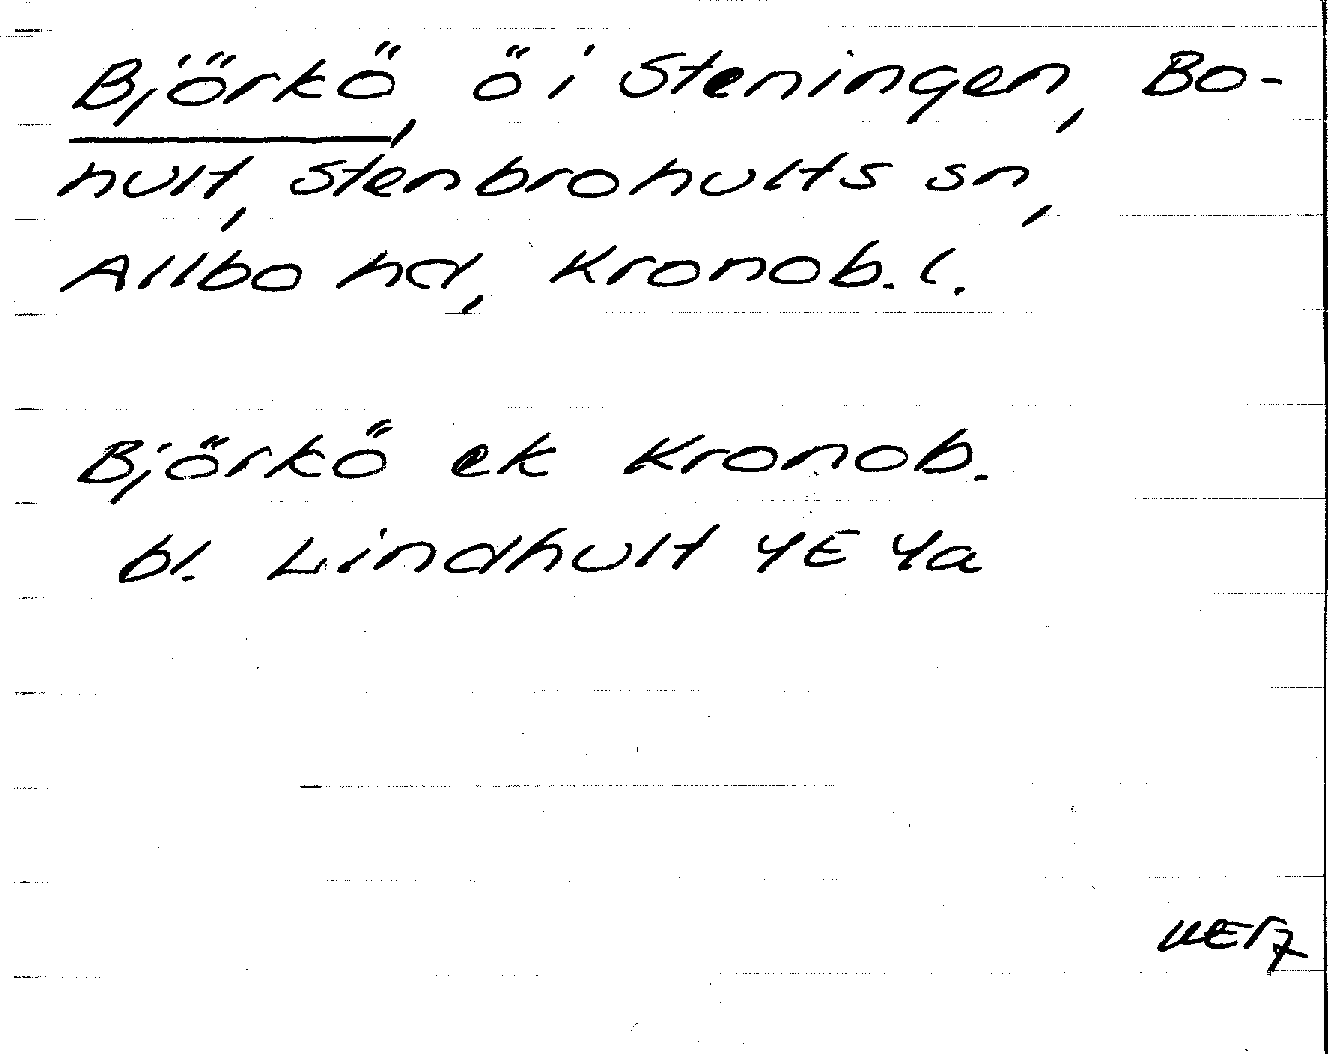 Björkö, ö i Steningen, Bo-
hult, Stenbrohults sn,
Allbo hd, Kronob. l.
Björkö ek Kronob.
bl. Lindhult 4E 4a